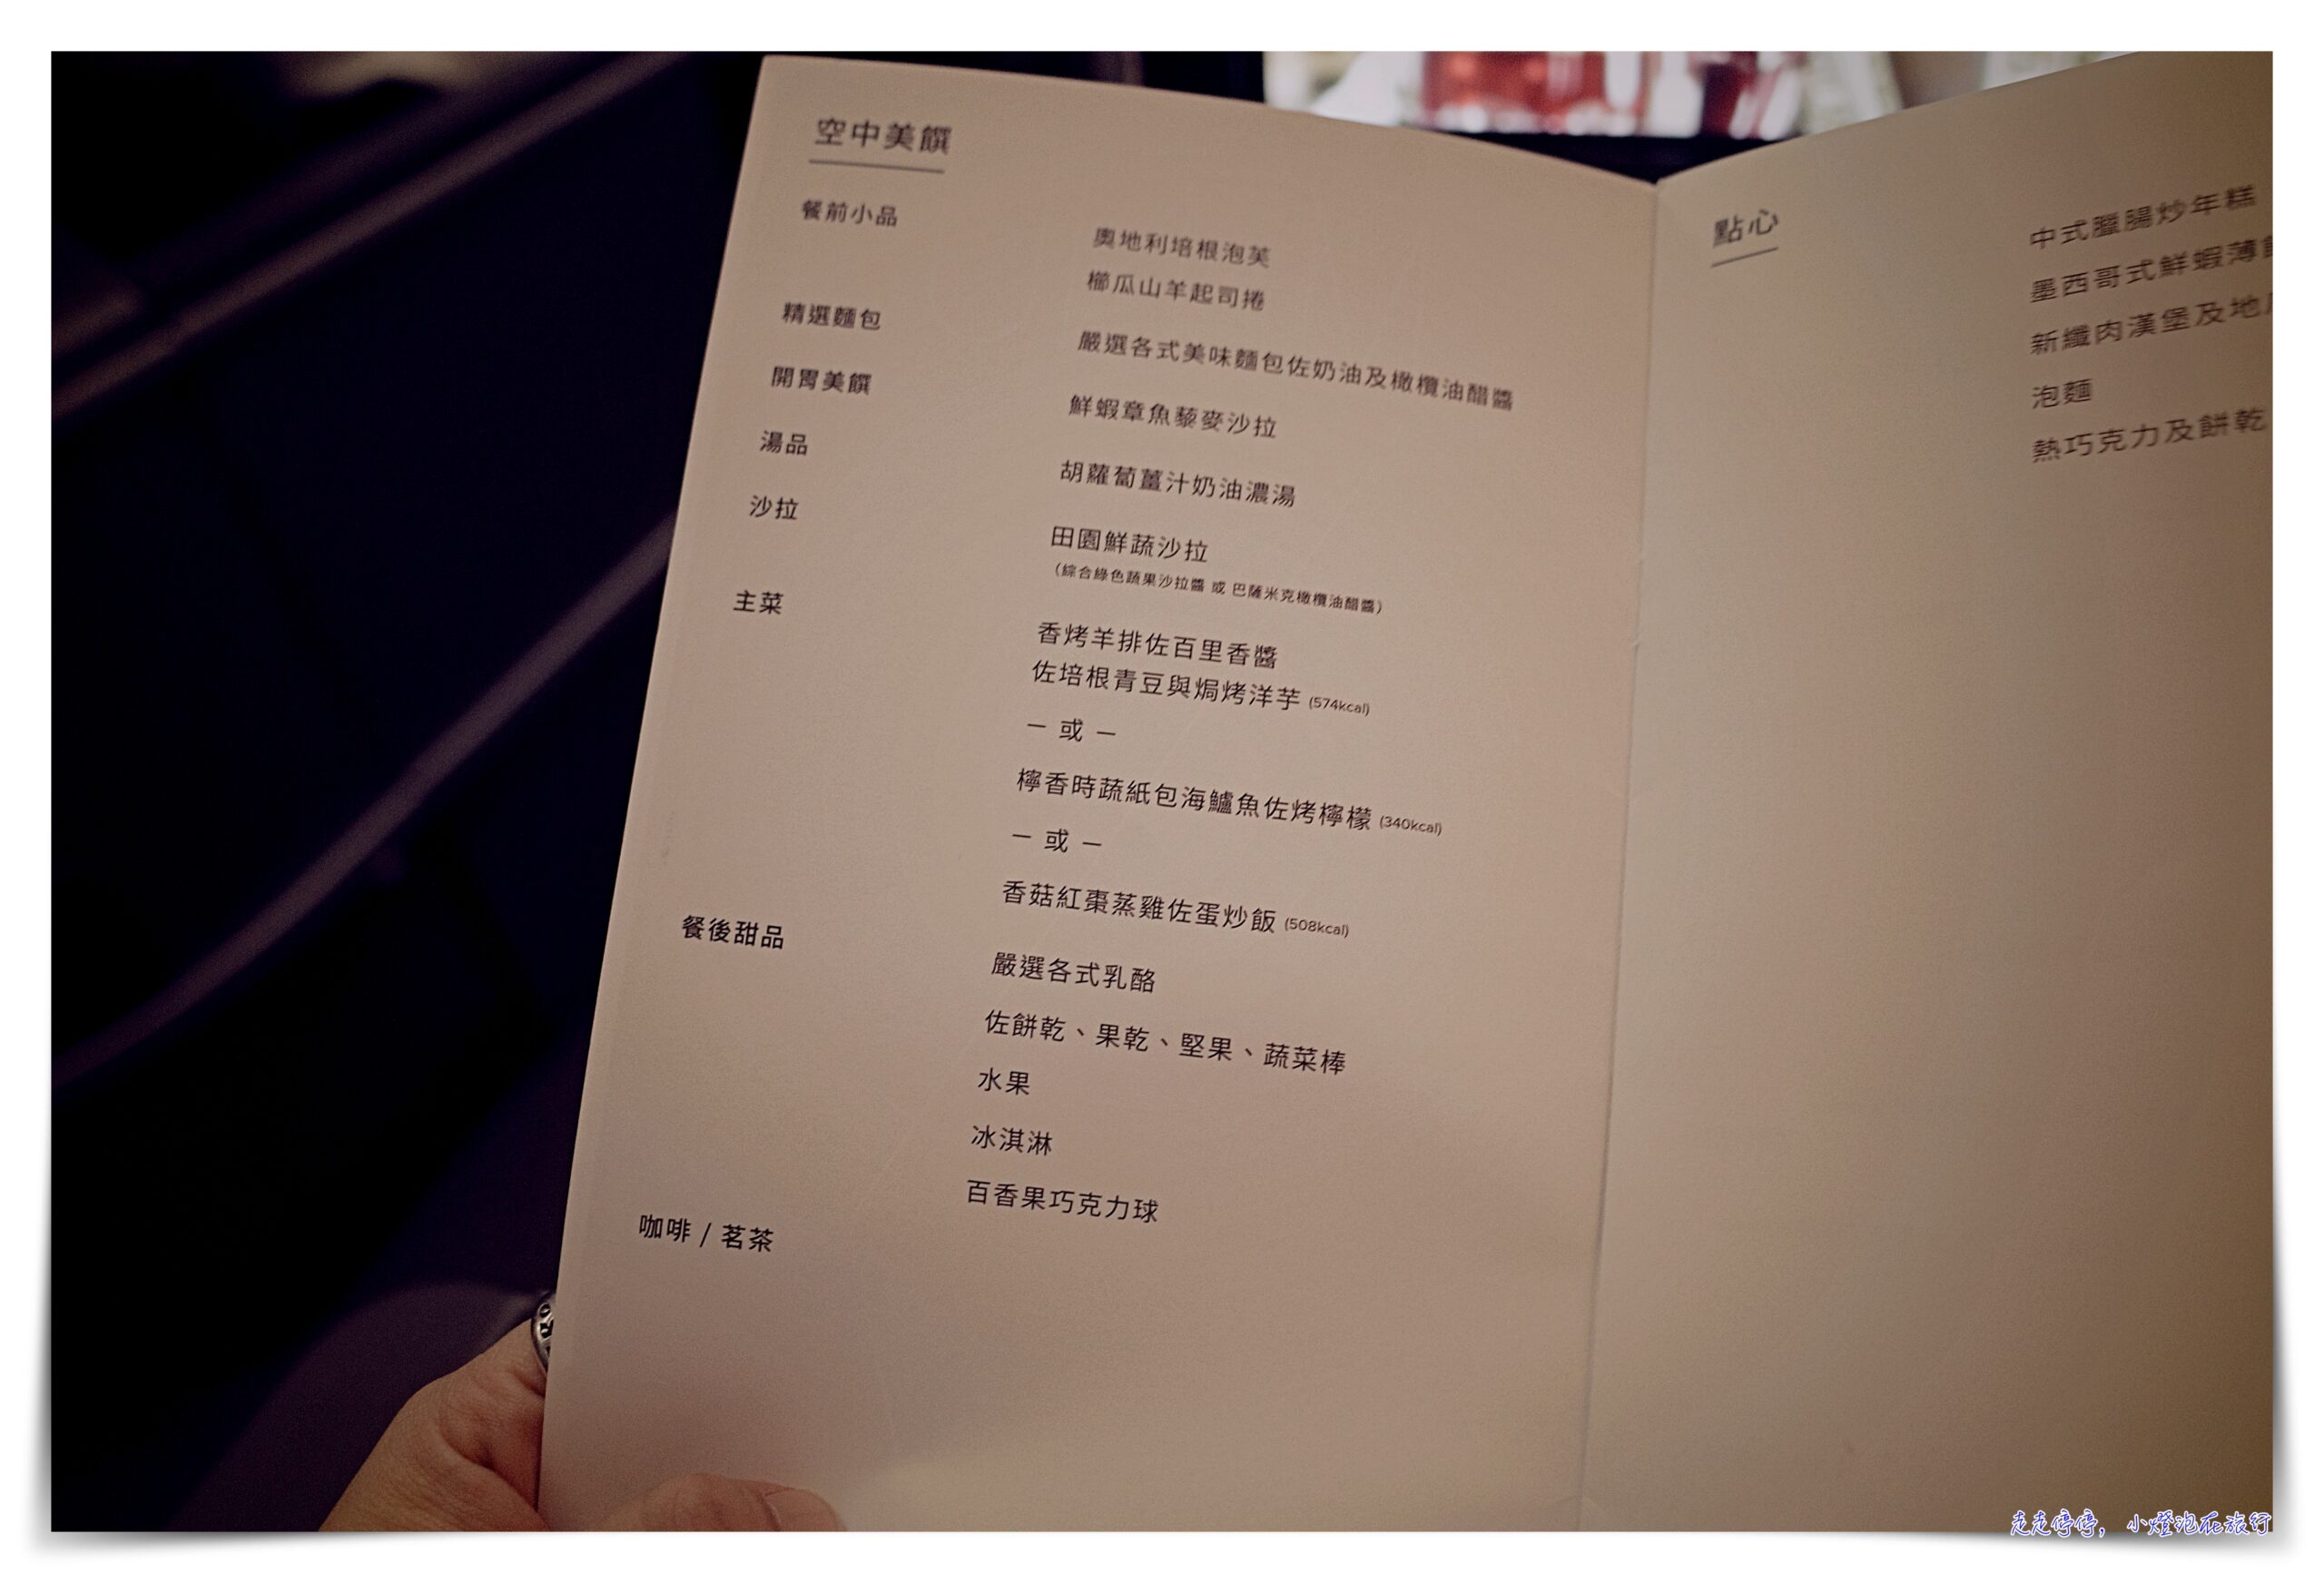 空中美饌
餐前小品
奧地利培根泡芙
櫛瓜山羊起司捲
精選麵包
嚴選各式美味麵包佐奶油及橄欖油醋醬
開胃美饌
鮮蝦章魚藜麥沙拉
湯品
胡蘿蔔薑汁奶油濃湯
沙拉
田園鮮蔬沙拉
（綜合綠色蔬果沙拉醬 或 巴薩米克橄欖油醋醬）
主菜
香烤羊排佐百里香醬
佐培根青豆與焗烤洋芋 (574kcal)
— 或 —
檸香時蔬紙包海鱸魚佐烤檸檬 (340kcal)
— 或 —
香菇紅棗蒸雞佐蛋炒飯 (508kcal)
餐後甜品
嚴選各式乳酪
佐餅乾、果乾、堅果、蔬菜棒
水果
冰淇淋
百香果巧克力球
咖啡 / 茗茶
點心
中式臘腸炒年糕
墨西哥式鮮蝦薄
新纖肉漢堡及地
泡麵
熱巧克力及餅乾
走走停停，小燈泡在旅行